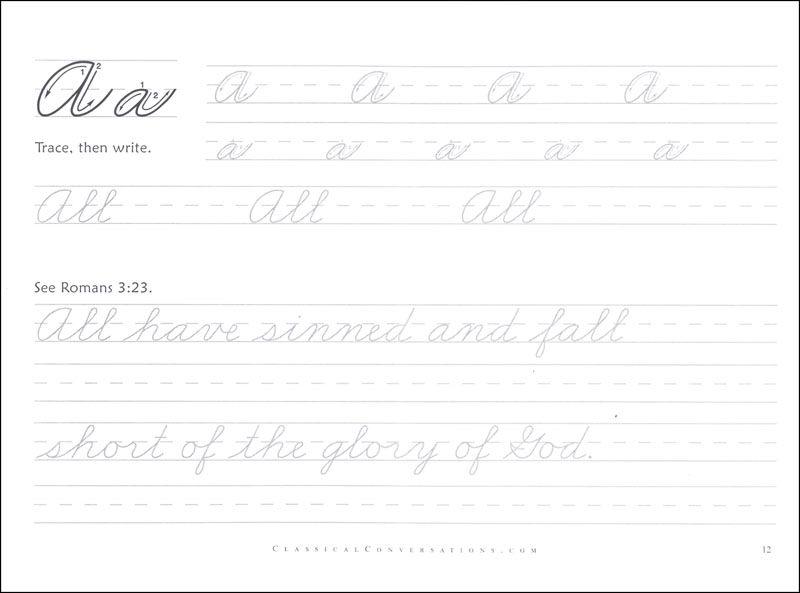 Aa A A A A
Trace, then write. a a a a a
All All All
See Romans 3:23.
All have sinned and fall
short of the glory of God.
CLASSICALCONVERSATIONS.COM 12